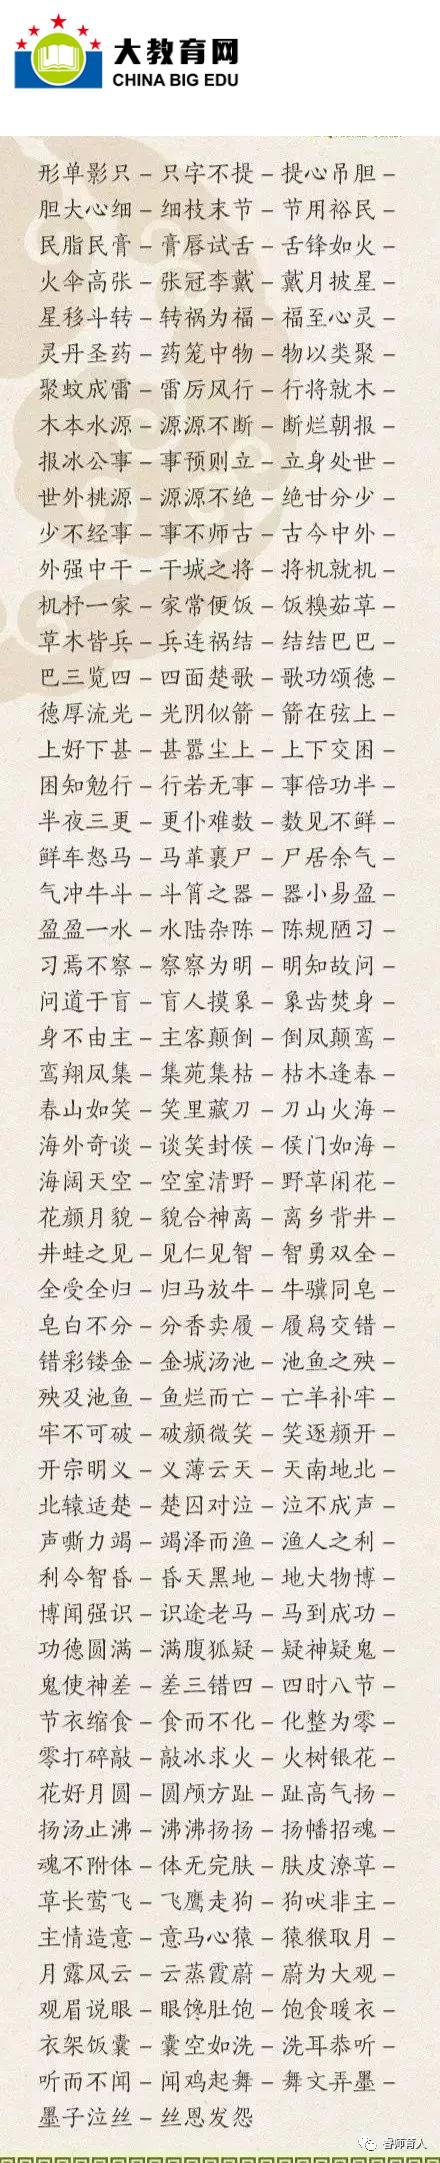 大教育网
CHINA BIG EDU
形单影只 – 只字不提 – 提心吊胆 –
胆大心细 – 细枝末节 – 节用裕民 –
民脂民膏 – 膏唇试舌 – 舌锋如火 –
火伞高张 – 张冠李戴 – 戴月披星 –
星移斗转 – 转祸为福 – 福至心灵 –
灵丹圣药 – 药笼中物 – 物以类聚 –
聚蚊成雷 – 雷厉风行 – 行将就木 –
木本水源 – 源源不断 – 断烂朝报 –
报冰公事 – 事预则立 – 立身处世 –
世外桃源 – 源源不绝 – 绝甘分少 –
少不经事 – 事不师古 – 古今中外 –
外强中干 – 干城之将 – 将机就机 –
机杼一家 – 家常便饭 – 饭糗茹草 –
草木皆兵 – 兵连祸结 – 结结巴巴 –
巴三览四 – 四面楚歌 – 歌功颂德 –
德厚流光 – 光阴似箭 – 箭在弦上 –
上好下甚 – 甚嚣尘上 – 上下交困 –
困知勉行 – 行若无事 – 事倍功半 –
半夜三更 – 更仆难数 – 数见不鲜 –
鲜车怒马 – 马革裹尸 – 尸居余气 –
气冲牛斗 – 斗筲之器 – 器小易盈 –
盈盈一水 – 水陆杂陈 – 陈规陋习 –
习焉不察 – 察察为明 – 明知故问 –
问道于盲 – 盲人摸象 – 象齿焚身 –
身不由主 – 主客颠倒 – 倒凤颠鸾 –
鸾翔凤集 – 集苑集枯 – 枯木逢春 –
春山如笑 – 笑里藏刀 – 刀山火海 –
海外奇谈 – 谈笑封侯 – 侯门如海 –
海阔天空 – 空室清野 – 野草闲花 –
花颜月貌 – 貌合神离 – 离乡背井 –
井蛙之见 – 见仁见智 – 智勇双全 –
全受全归 – 归马放牛 – 牛骥同皂 –
皂白不分 – 分香卖履 – 履舄交错 –
错彩镂金 – 金城汤池 – 池鱼之殃 –
殃及池鱼 – 鱼烂而亡 – 亡羊补牢 –
牢不可破 – 破颜微笑 – 笑逐颜开 –
开宗明义 – 义薄云天 – 天南地北 –
北辕适楚 – 楚囚对泣 – 泣不成声 –
声嘶力竭 – 竭泽而渔 – 渔人之利 –
利令智昏 – 昏天黑地 – 地大物博 –
博闻强识 – 识途老马 – 马到成功 –
功德圆满 – 满腹狐疑 – 疑神疑鬼 –
鬼使神差 – 差三错四 – 四时八节 –
节衣缩食 – 食而不化 – 化整为零 –
零打碎敲 – 敲冰求火 – 火树银花 –
花好月圆 – 圆颅方趾 – 趾高气扬 –
扬汤止沸 – 沸沸扬扬 – 扬幡招魂 –
魂不附体 – 体无完肤 – 肤皮潦草 –
草长莺飞 – 飞鹰走狗 – 狗吠非主 –
主情造意 – 意马心猿 – 猿猴取月 –
月露风云 – 云蒸霞蔚 – 蔚为大观 –
观眉说眼 – 眼馋肚饱 – 饱食暖衣 –
衣架饭囊 – 囊空如洗 – 洗耳恭听 –
听而不闻 – 闻鸡起舞 – 舞文弄墨 –
墨子泣丝 – 丝恩发怨
师育人